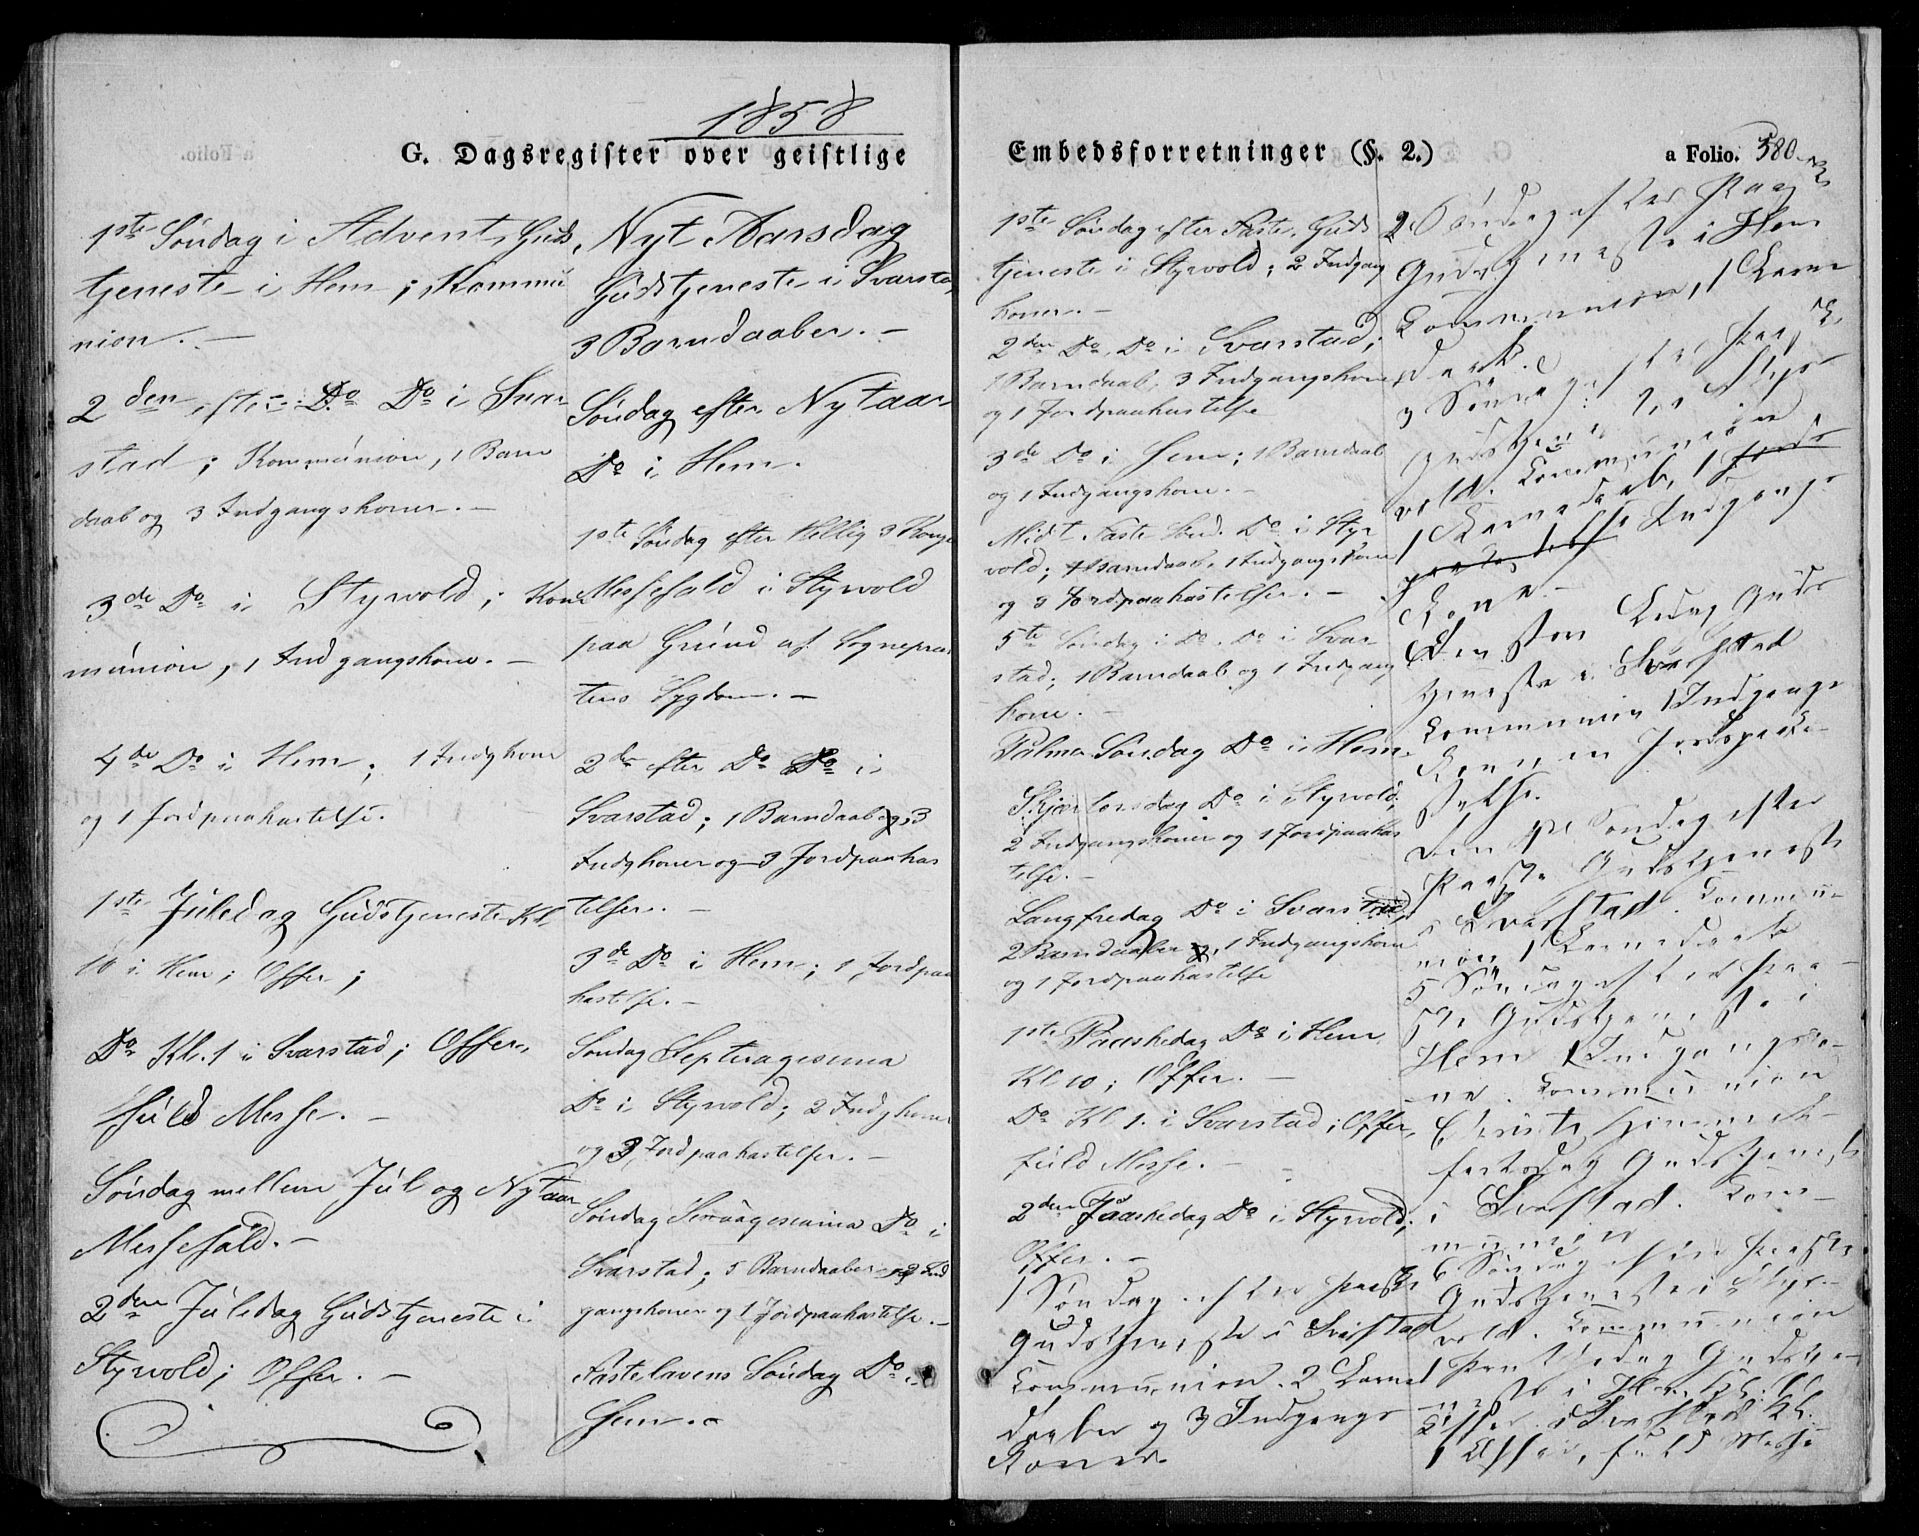 1858
G. Dagsregister over geistlige
1ste Søndag i Advent, Guds
tjeneste i Hem; Kommu
nion. —
2den efter Do Do i Svar
stad; Kommunion, 1 Barn
daab og 3 Indgangskoner. —
3de Do i Styrvold; Kom
munion, 1 Indgangskone. —
4de Do i Hem; 1 Indgkone
og 1 Jordpaakastelse.
1ste Juledag Gudstjeneste Kl.
10 i Hem; Offer;
Do Kl. 1 i Svarstad; Offer,
fuld Messe. —
Søndag mellem Jul og Nytaar
Messefald. —
2den Juledag Gudstjeneste i
Styrvold; Offer. —
Nyt Aarsdag
Gudstjeneste i Svarstad
3 Barndaaber. —
Søndag efter Nytaar
Do i Hem.
1ste Søndag efter Hellig 3 Konge
Messefald i Styrvold
paa Grund af Sognepræs
tens Sygdom. —
2den efter Do Do i
Svarstad; 1 Barndaab, 3
Indgkoner og 3 Jordpaakas
telser. —
3de Do i Hem; 1 Jordpaa
kastelse. —
Søndag Septuagesima
Do i Styrvold; 2 Indgkoner
og 3 Jordpaakastelser. —
Søndag Sexagesima Do i
Svarstad; 5 Barndaaber, 2 Ind
gangskoner og 1 Jordpaakastelse. —
Fastelavens Søndag Do i
Hem. —
Embedsforretninger (§. 2.)
a Folio. 380
1ste Søndag efter Faste, Guds
tjeneste i Styrvold; 2 Indgang
koner. —
2den Do Do i Svarstad;
1 Barndaab, 3 Indgangskoner
og 1 Jordpaakastelse
3de Do i Hem; 1 Barndaab
og 1 Indgangskone. —
Midt Faste Sønd. Do i Styr
vold; 1 Barndaab, 1 Indgangskone
og 3 Jordpaakastelser. —
5te Søndag i Do Do i Svar
stad; 1 Barndaab og 1 Indgang
kone. —
Palme Søndag Do i Hem.
Skjærtorsdag Do i Styrvold;
2 Indgangskoner og 1 Jordpaakas
telse. —
Langfredag Do i Svarstad;
2 Barndaaber, 1 Indgangskone
og 1 Jordpaakastelse
1ste Paaskedag Do i Hem
Kl 10; Offer. —
Do Kl 1. i Svarstad; Offer,
fuld Messe. —
2den Paaskedag Do i Styrvold;
Offer. —
1 Søndag efter Paaske
Gudstjeneste i Svarstad
Communion. 2 Barne
daaber og 3 Indgangs
Koner
2 Søndag efter Paaske
Gudstjeneste i Hem
Communion, 1 Barne
daab.
3 Søndag efter Paaske
Gudstjeneste i Styr
vold. Communion
1 Barnedaab, 1 Jords
paakastelse Indgangs
Kone. —
Den store Bededag Guds
tjeneste i Svarstad
Communion 1 Indgangs
Kone en Jordspaaka
stelse.
Den 4de Søndag efter
Paaske Gudstjeneste
i Svarstad. Commu
nion 1 Barnedaab
5 Søndag efter Paa
ske Gudstjeneste i
Hem 1 Indgangsko
ne. Communion
Christi Himmel
fartsdag Gudstjeneste
i Svarstad. Com
munion
6 Søndag efter Paaske
Gudstjeneste i Styr
vold. Communion
1 Pintsedag Gudstje
neste i Hem Kl. 10
Offer. i Svarstad Kl.
1 Offer, fuld Messe